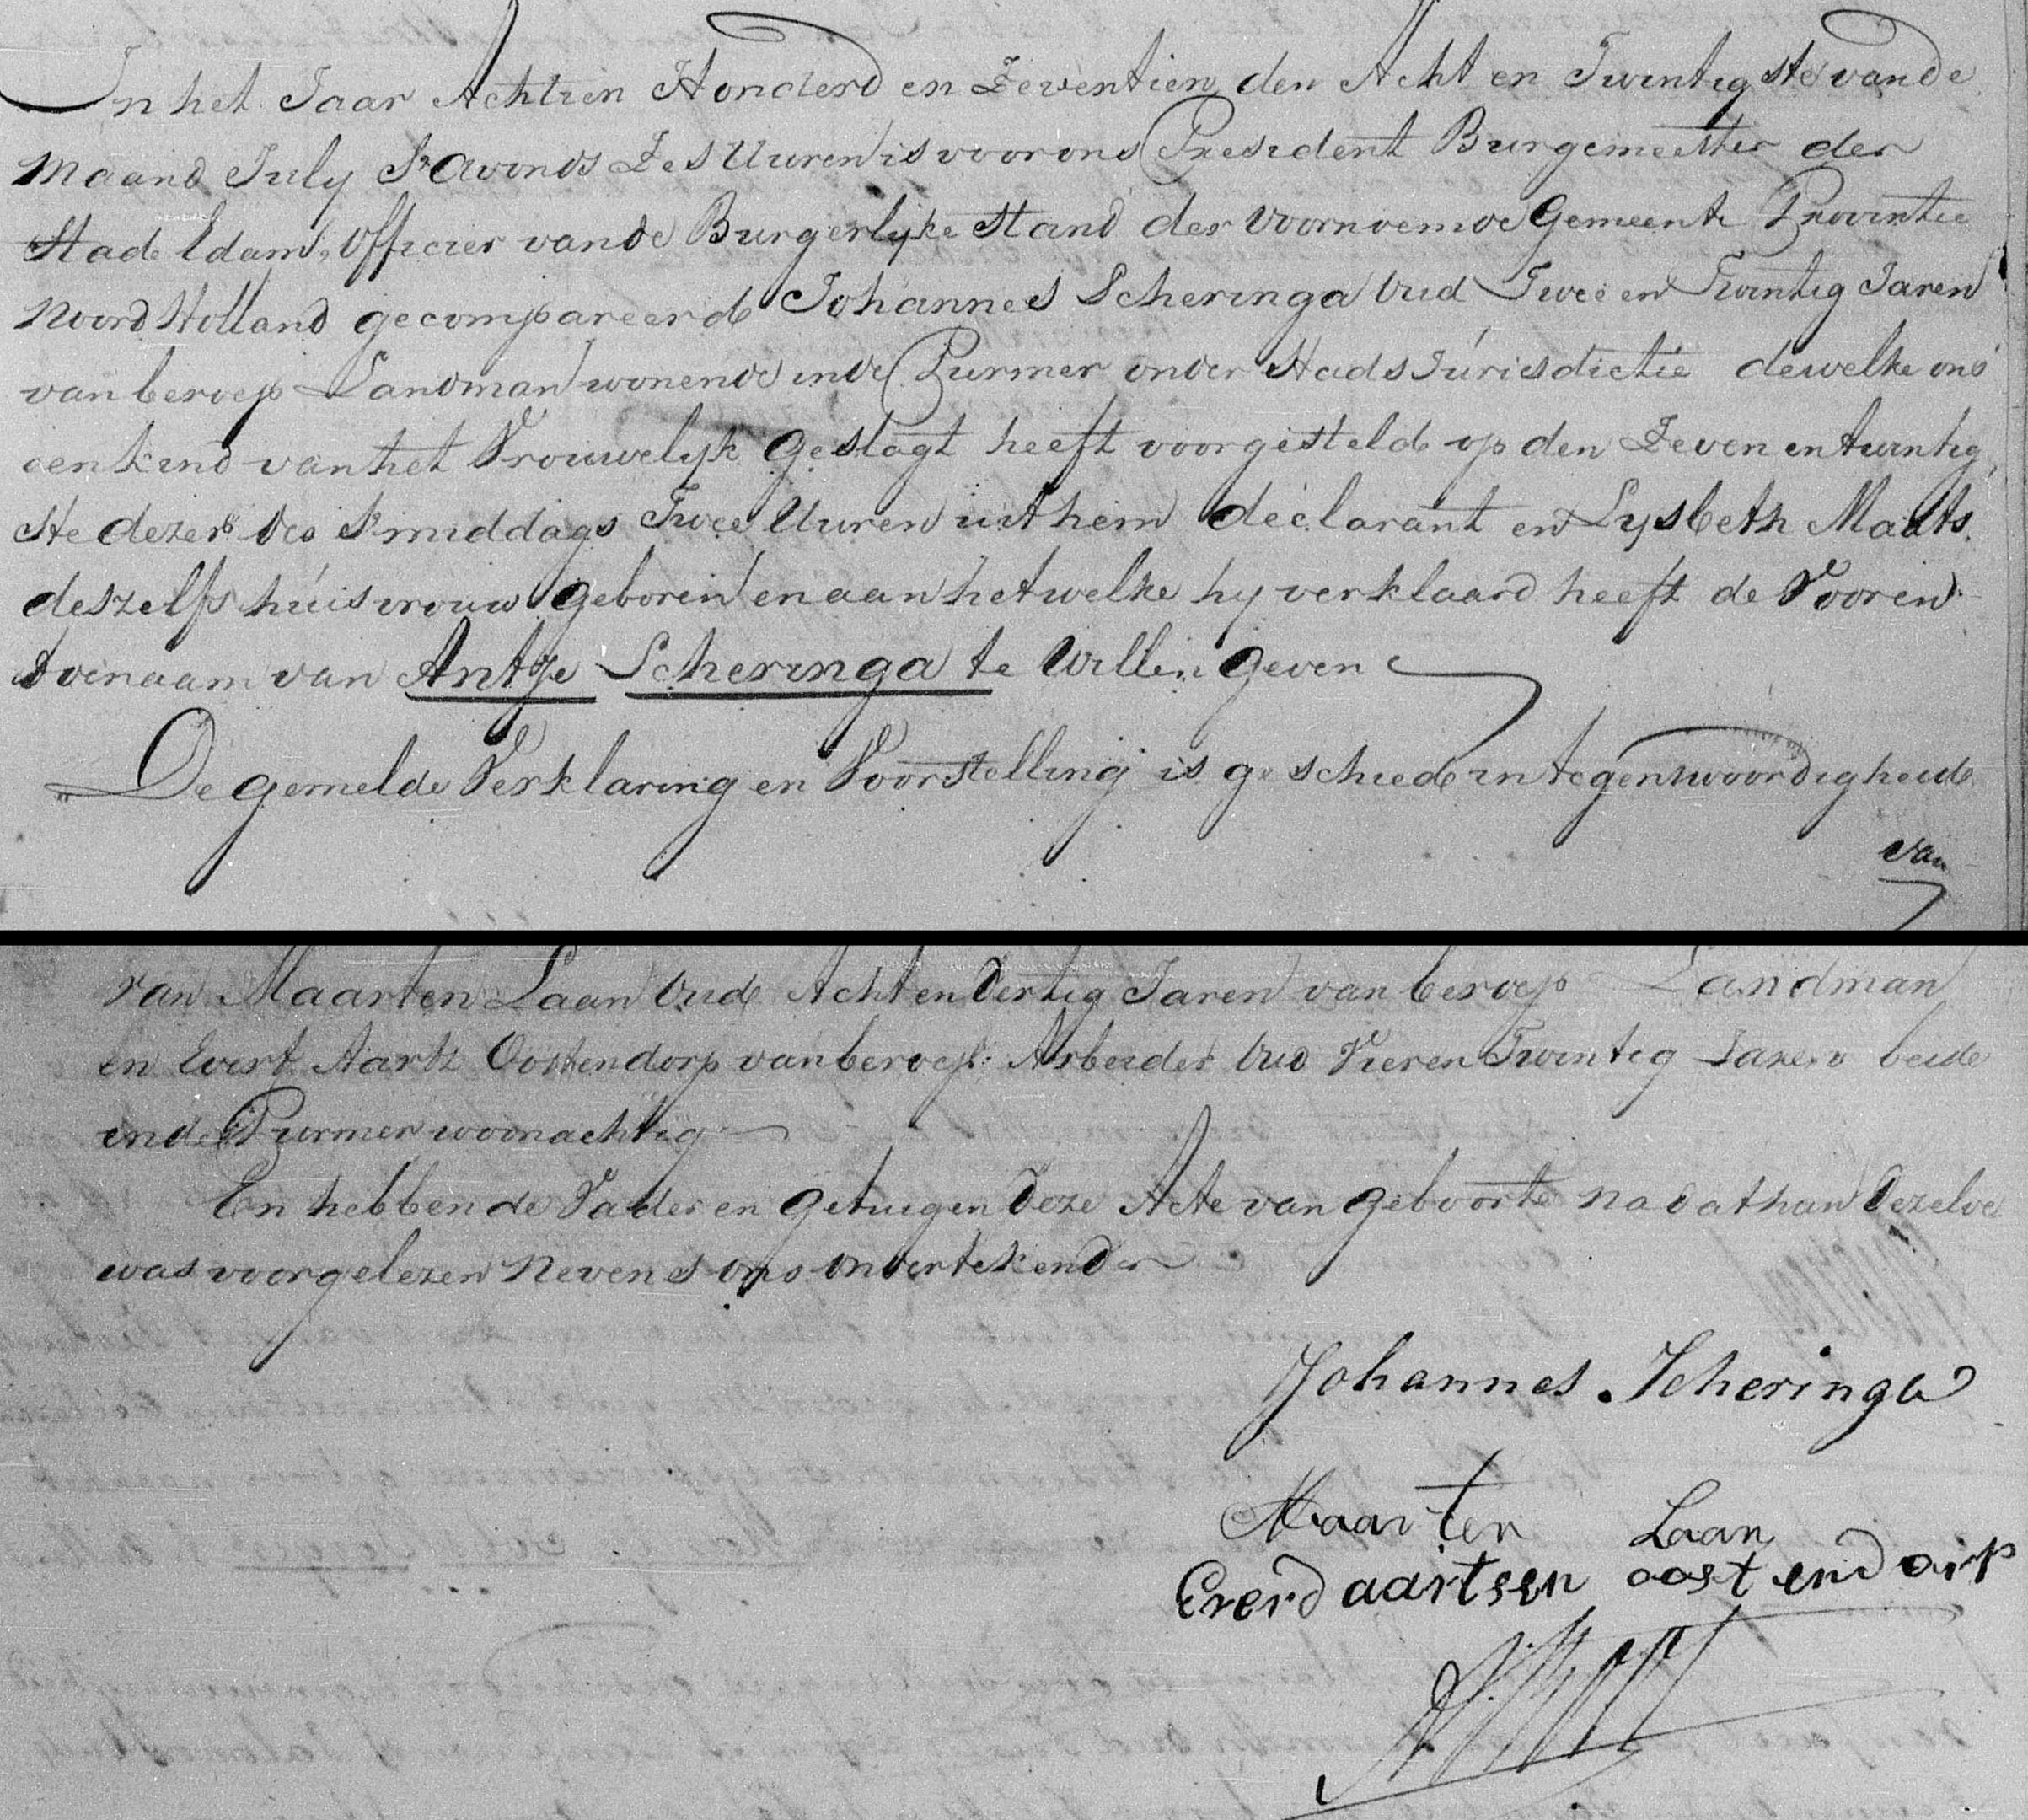 In het Jaar Achtien Honderd en Zeventien den Acht en Twintigste vande
Maand July S'Avonds Zes Uuren is voor ons President Burgemeester der
Stad Edam, Officier vande Burgerlyke Stand der voornoemde Gemeente Provintie
Noord Holland gecompareerd Johannes Scheringa Oud Twee en Twintig Jaren
van beroep Landman wonende inde Purmer onder Stads Jurisdictie dewelke ons
een kind van het Vrouwelyk Geslagt heeft voorgesteld op den Zeven en twintig
ste dezer des S'middags Twee Uuren uit hem declarant en Lysbeth Maats
deszelfs huisvrouw Geboren en aan hetwelke hy verklaard heeft de Vooren
doenaam van Antje Scheringa te Willen Geven
De gemelde Verklaring en Voorstelling is geschied in tegenwoordigheid
van
van Maarten Laan Oud Acht en Dertig Jaren van beroep Landman
en Evert Aartz Oostendorp van beroep Arbeider Oud Vier en Twintig Jaren beide
inde Purmer woonachtig
En hebben de Vader en Getuigen Deze Acte van Geboorte na dat han Dezelve
was voorgelezen Nevens ons ondertekend
Johannes Scheringa
Maarten Laan
Everd aartsen oostendorp